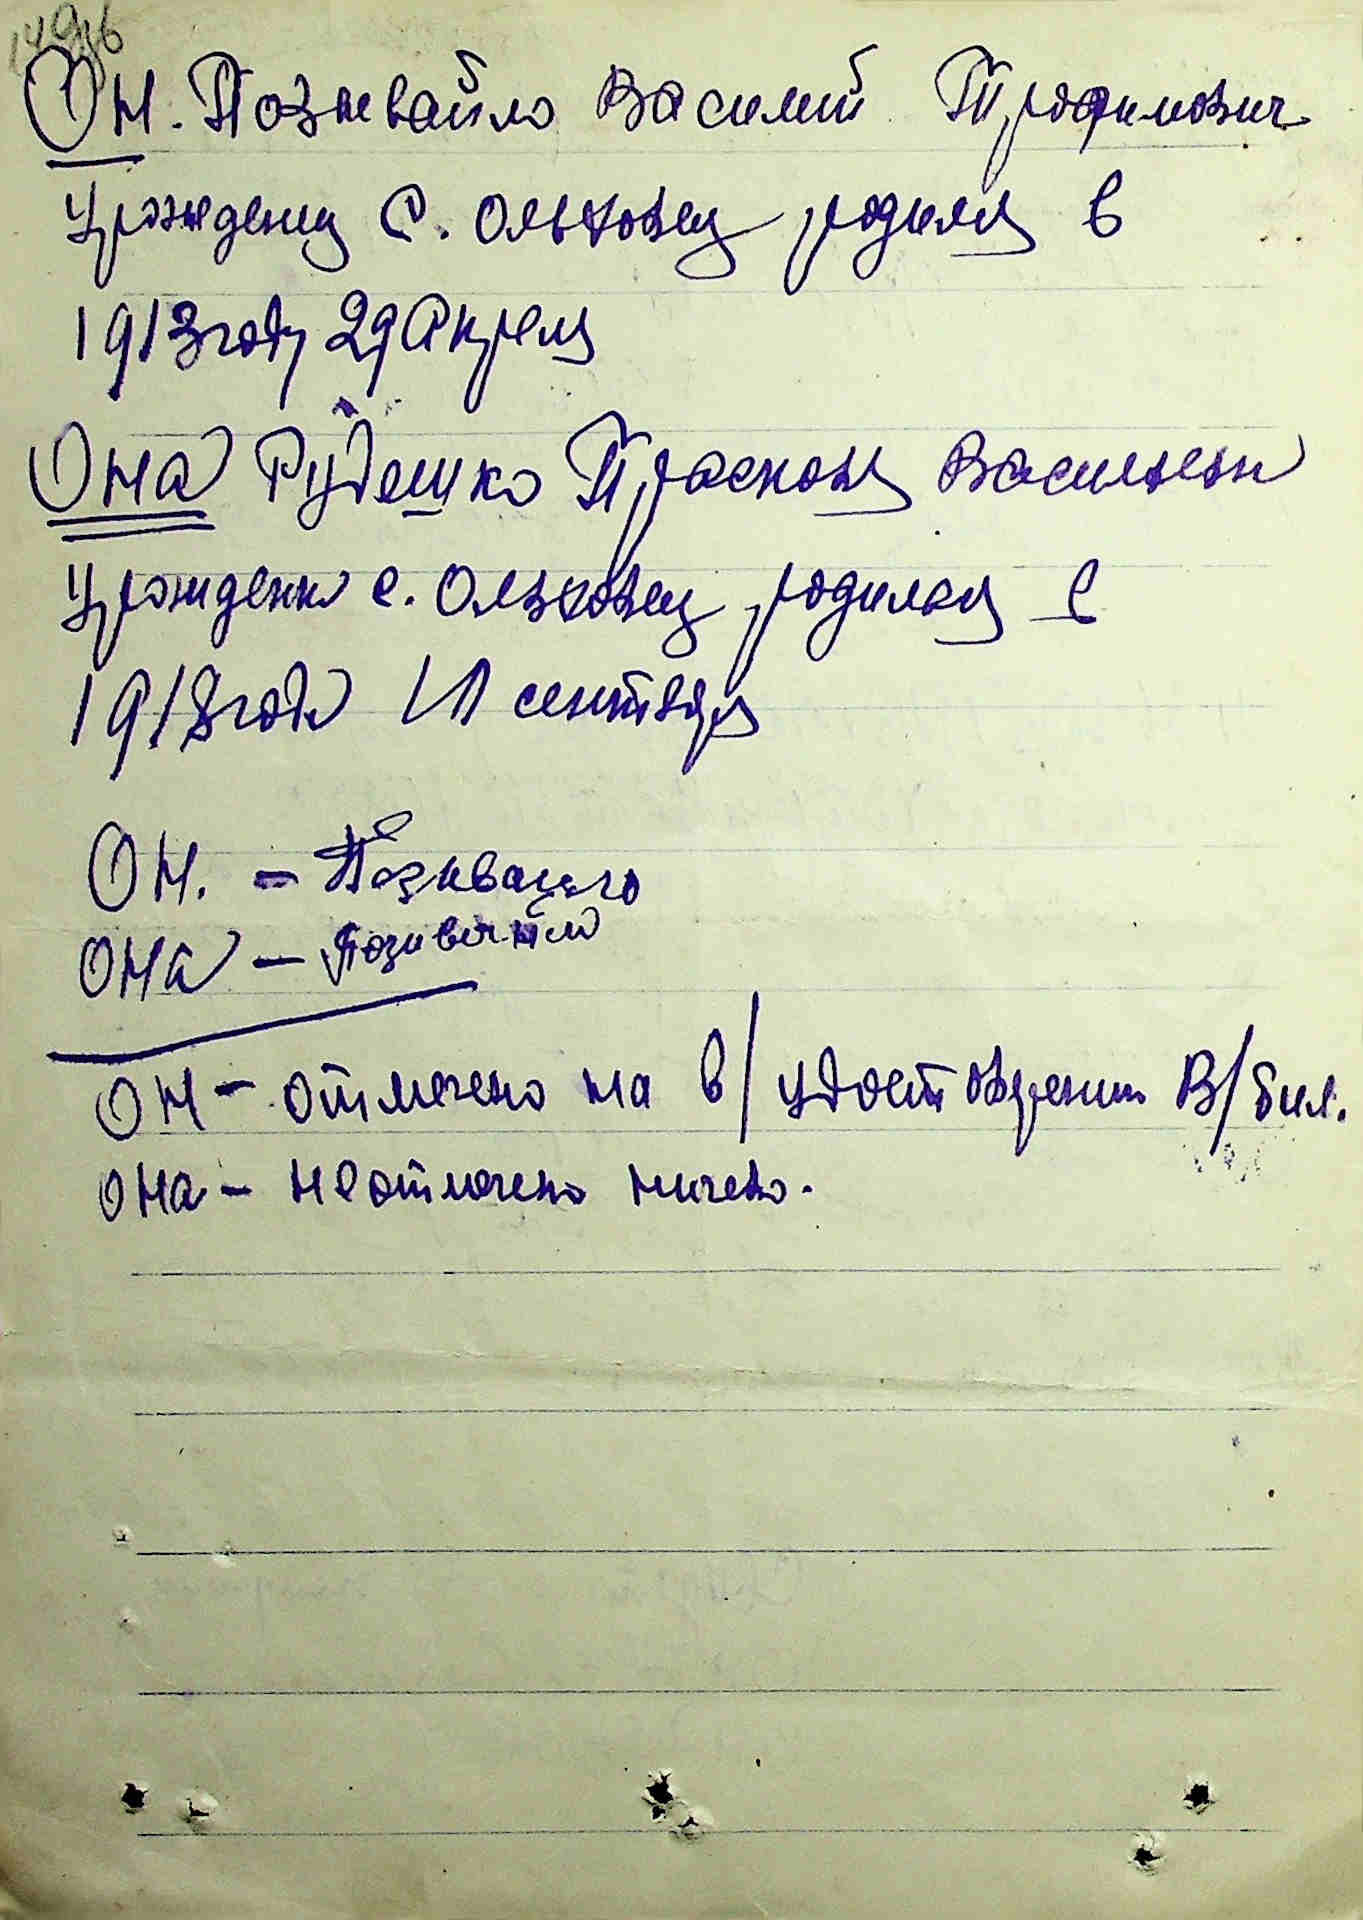 Он. Позивайло Василий Трофимович
Урожденец С. Ольховец родился в
1913 году 29 Апреля
Она Рудешко Прасковя Васильевна
Урожденка с. Ольховец родилася в
1918 года 11 сентября
Он. – Позивайло
Она – Позивайло
Он – отмечено на в/удостоверении В/бил.
Она – не отмечено ничего.